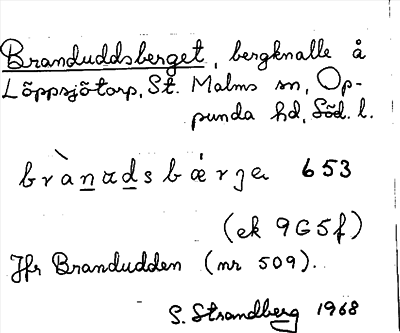 Branduddsberget, bergknalle å
Löppsjötorp, St. Malms sn, Op-
punda hd, Söd. l.
brànudsbǽrjeı 653
(ek 9G5f)
Jfr Brandudden (nr 509).
S. Strandberg 1968